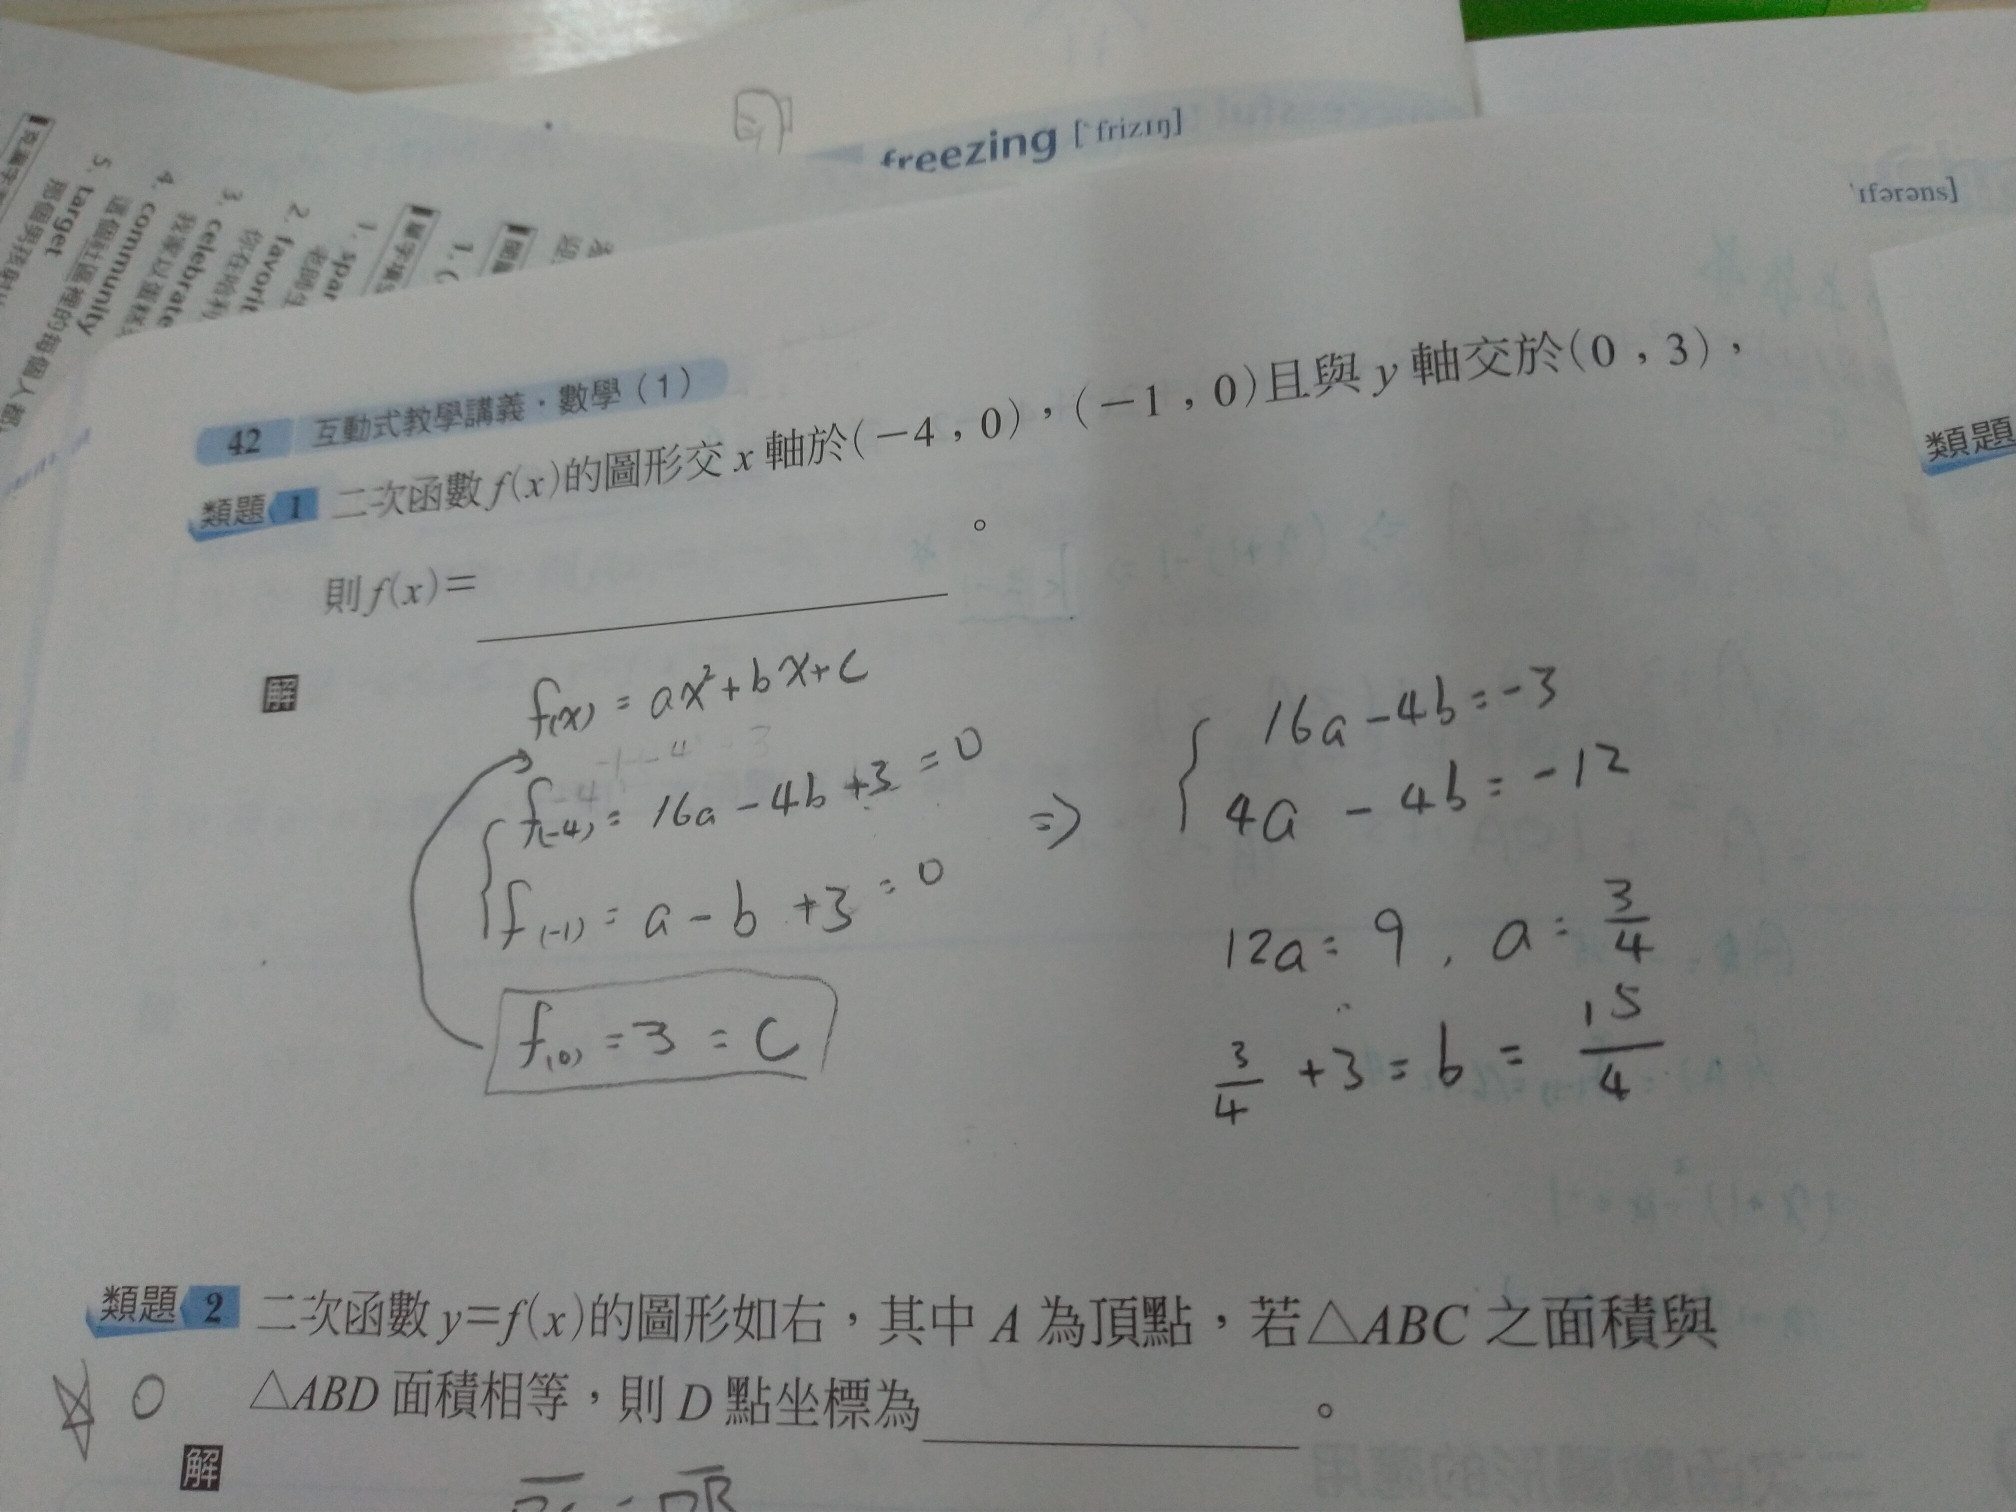 freezing [ˋfrizɪŋ]
ˋɪfərəns]
5. target
4. community
3. celebrate
2. favorit
1. spar
1. (
42 互動式教學講義．數學（1）
類題
類題 1 二次函數 f(x)的圖形交 x 軸於(－4，0)，(－1，0)且與 y 軸交於(0，3)，
則 f(x)＝ 。
解
f(x) = ax²+bx+c
f(-4) = 16a - 4b +3 = 0
f(-1) = a - b +3 = 0
f(0) = 3 = c
⇒ 16a - 4b = -3
4a - 4b = -12
12a = 9 , a = 3/4
3/4 + 3 = b = 15/4
類題 2 二次函數 y＝f(x)的圖形如右，其中 A 為頂點，若△ABC 之面積與
△ABD 面積相等，則 D 點坐標為 。
解